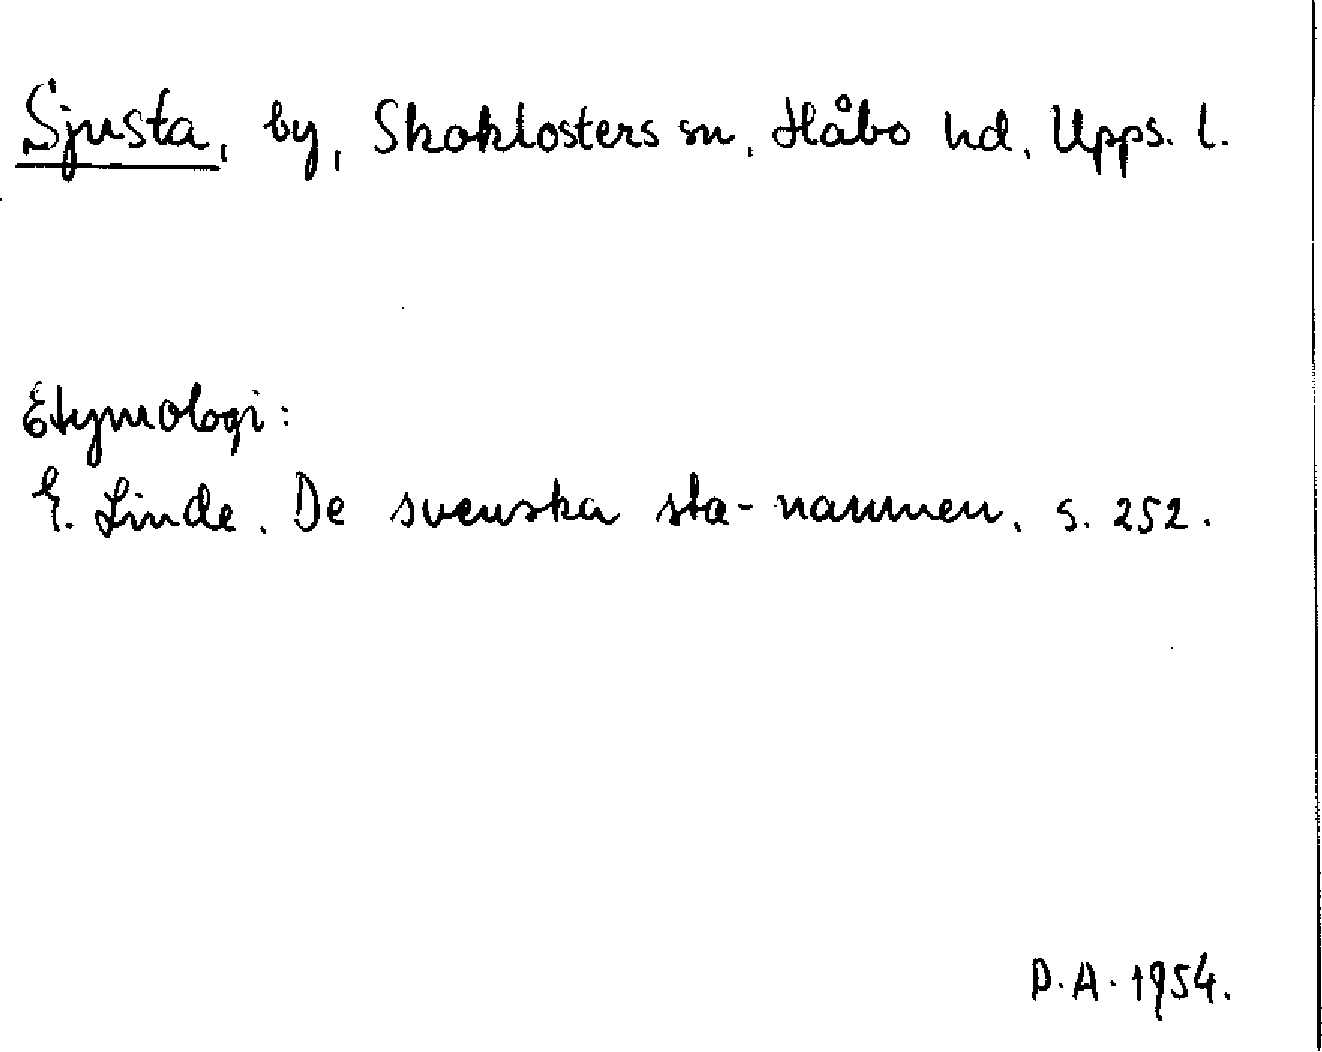 Sjusta, by, Skoklosters sn, Håbo hd, Upps. l.
Etymologi:
E. Linde. De svenska sta-namnen. s. 252.
D.A. 1954.